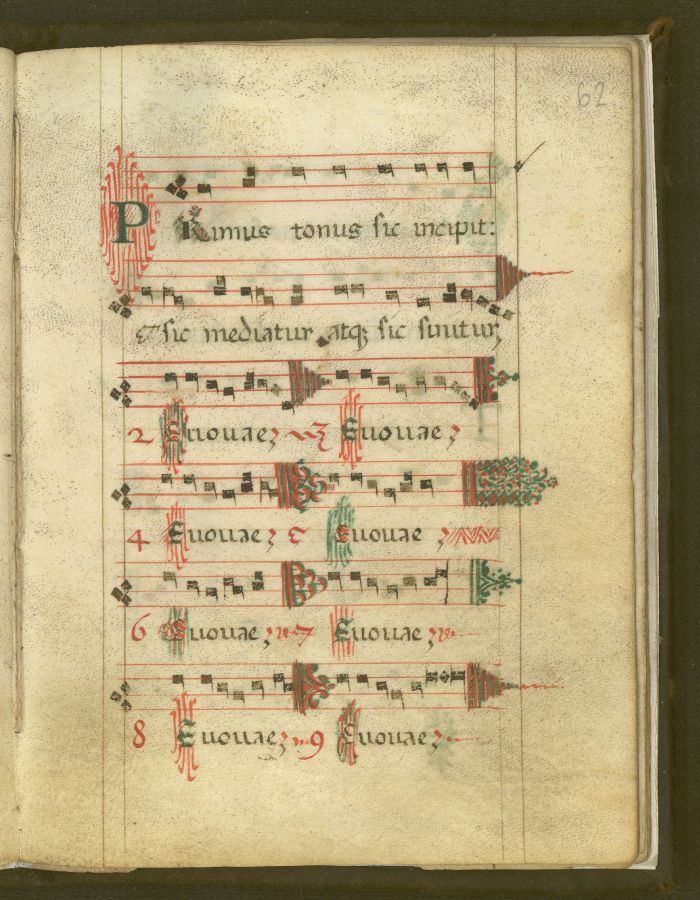 62
PRimus tonus sic incipit:
& sic mediatur, atqꝫ sic finitur,
2 Euouae; 3 Euouae;
4 Euouae; 5 Euouae;
6 Euouae; 7 Euouae;
8 Euouae; 9 Euouae;